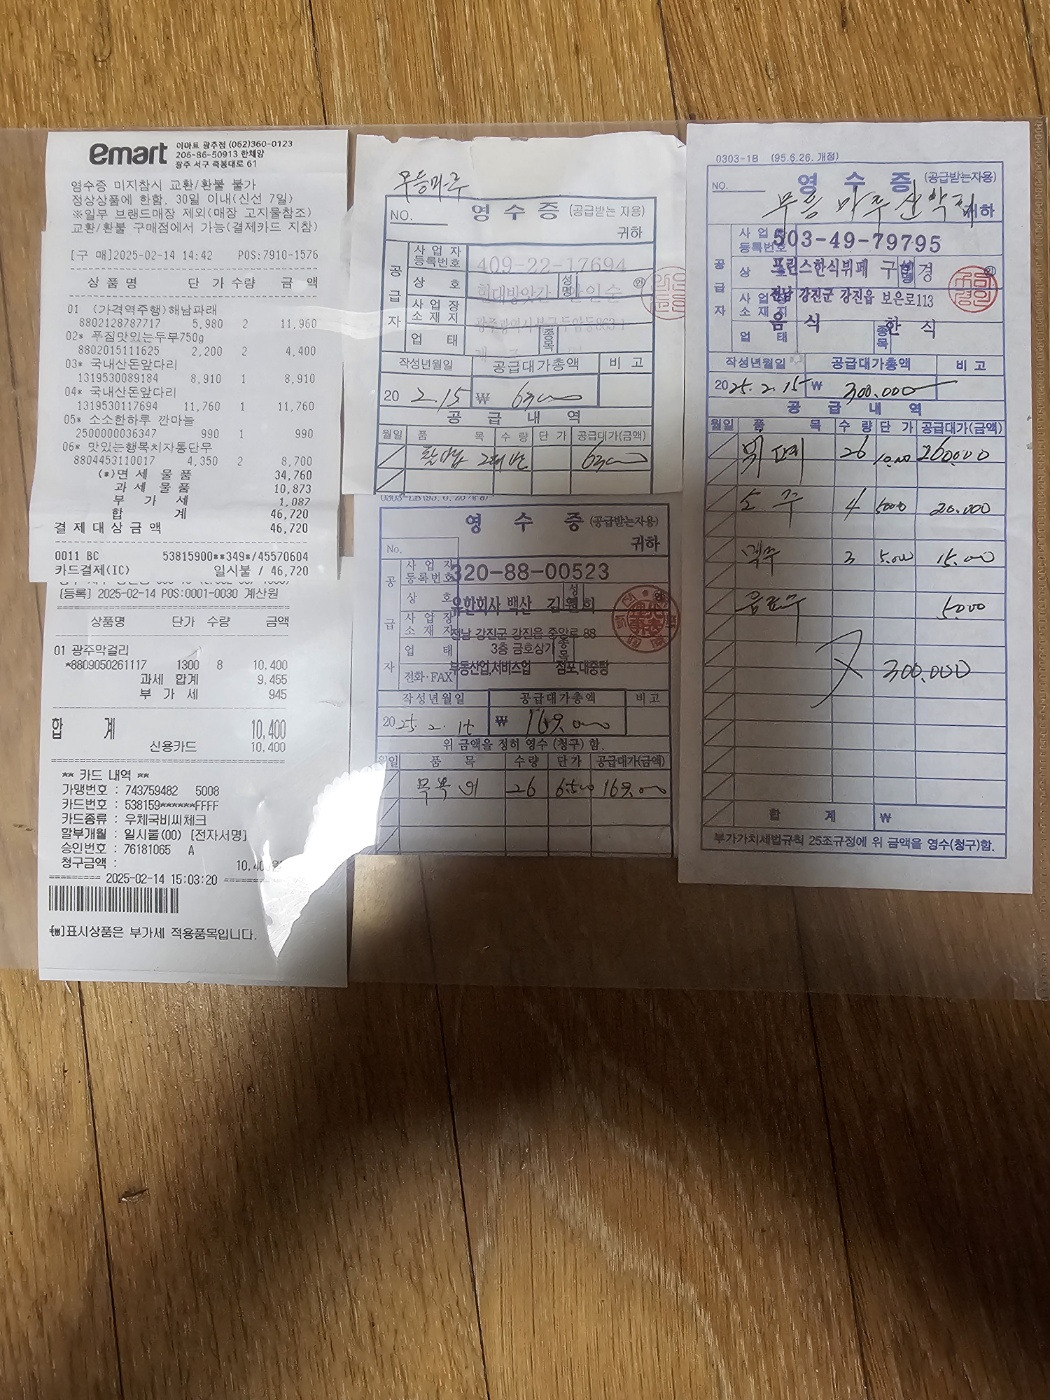 emart 이마트 광주점 (062)360-0123
206-86-50913 한채양
광주 서구 죽봉대로 61
영수증 미지참시 교환/환불 불가
정상상품에 한함, 30일 이내(신선 7일)
※일부 브랜드매장 제외(매장 고지물참조)
교환/환불 구매점에서 가능(결제카드 지참)
[구 매]2025-02-14 14:42 POS:7910-1576
상 품 명 단 가 수량 금 액
01 (가격역주행)해남파래
8802128787717 5,980 2 11,960
02* 푸짐맛있는두부750g
8802015111625 2,200 2 4,400
03* 국내산돈앞다리
1319530089184 8,910 1 8,910
04* 국내산돈앞다리
1319530117694 11,760 1 11,760
05* 소소한하루 깐마늘
2500000036347 990 1 990
06* 맛있는행복치자통단무
8804453110017 4,350 2 8,700
(*)면 세 물 품 34,760
과 세 물 품 10,873
부 가 세 1,087
합 계 46,720
결 제 대 상 금 액 46,720
0011 BC 53815900**349*/45570604
카드결제(IC) 일시불 / 46,720
[등록] 2025-02-14 POS:0001-0030 계산원
상품명 단가 수량 금액
01 광주막걸리
*8809050261117 1300 8 10,400
과세 합계 9,455
부 가 세 945
합 계 10,400
신용카드 10,400
** 카드 내역 **
가맹번호 : 743759482 5008
카드번호 : 538159******FFFF
카드종류 : 우체국비씨체크
할부개월 : 일시불(00) [전자서명]
승인번호 : 76181065 A
청구금액 :
2025-02-14 15:03:20
[w]표시상품은 부가세 적용품목입니다.
무등마루
NO. 영 수 증 (공급받는 자용)
귀하
공 급 자
사 업 자 등록번호 409-22-17694
상 호 현대방앗간 성명 ㊞
사 업 장 소 재 지
업 태 종목
작성년월일 공급대가총액 비 고
20 2.15 ₩ 63,000
공 급 내 역
월일 품 목 수 량 단 가 공급대가(금액)
63,000
영 수 증 (공급받는자용)
No. 귀하
공 급 자
사 업 자 등록번호 320-88-00523
상 호 유한회사 백산 성명 김영희
사 업 장 소 재 지 전남 강진군 강진읍 중앙로 88
3층 금호상가
업 태 부동산업,서비스업 종목 점포,대중탕
전화·FAX
작성년월일 공급대가총액 비고
2025. 2. 15 ₩ 169,000
위 금액을 정히 영수 (청구) 함.
월일 품 목 수량 단가 공급대가(금액)
목욕비 26 6,500 169,000
0303-1B (95.6.26. 개정)
NO. 영 수 증 (공급받는자용)
무등마루산악회 귀하
공 급 자
사 업 자 등록번호 503-49-79795
상 호 프린스한식뷔페 성명 ㊞
사 업 장 소 재 지 전남 강진군 강진읍 보은로113
업 태 음 식 종목 한 식
작성년월일 공급대가총액 비 고
2025. 2. 15 ₩ 300,000
공 급 내 역
월일 품 목 수 량 단 가 공급대가(금액)
26 10,000 260,000
소 주 4 5000 20,000
맥주 3 5,000 15,000
음료수 5000
300,000
합 계 ₩
부가가치세법규칙 25조규정에 위 금액을 영수(청구)함.